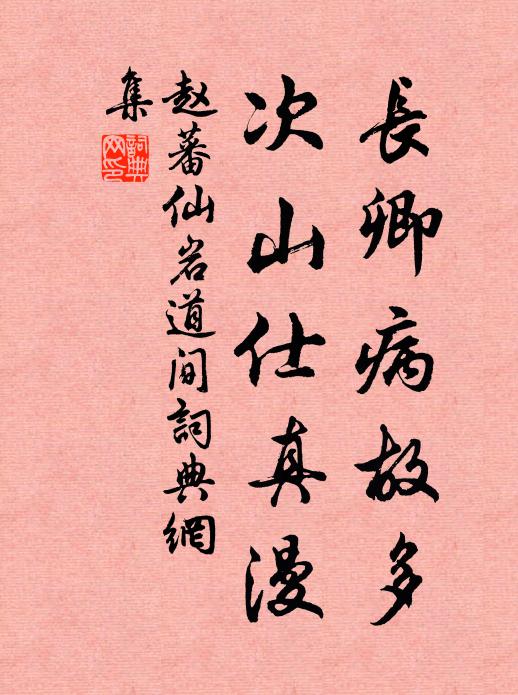 長卿病故多
次山仕真漫
赵蕃仙岩道间詞典網
集
詞典网印